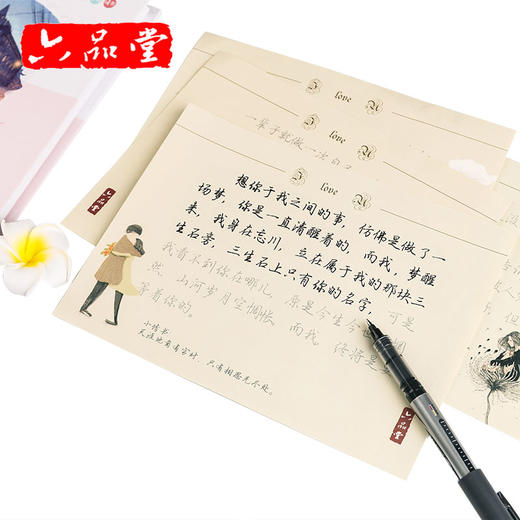 六品堂
I love U
I love U
一辈子就做一次自己
I love U
想你于我之间的事，仿佛是做了一
场梦，你是一直清醒着的，而我，梦醒
来，我身在忘川，立在属于我的那块三
生石旁，三生石上只有你的名字，可是
我看不到你在哪儿，原是今生今
然，山河岁月空惆怅，而我，终将是
等着你的。
小楷书
天涯地角有穷时，只有相思无尽处。
六品堂
六品堂